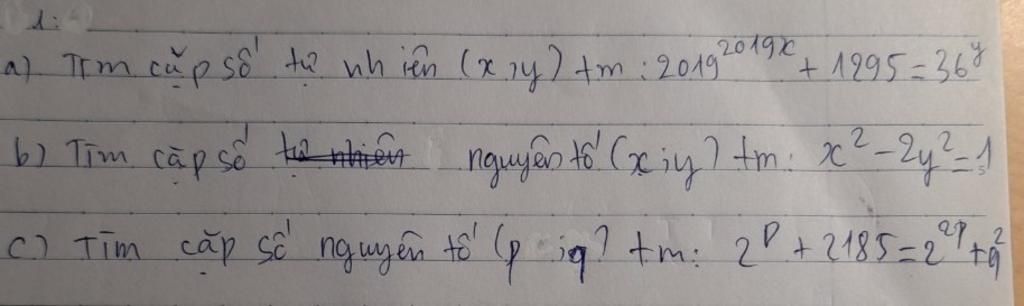 1:
a) Tìm cặp số tự nhiên (x,y) tm: 2019^2019x + 1295 = 36^y
b) Tìm cặp số tự nhiên nguyên tố (x;y) tm: x² - 2y² = 1
c) Tìm cặp số nguyên tố (p;q) tm: 2^p + 2185 = 2^2p + q²